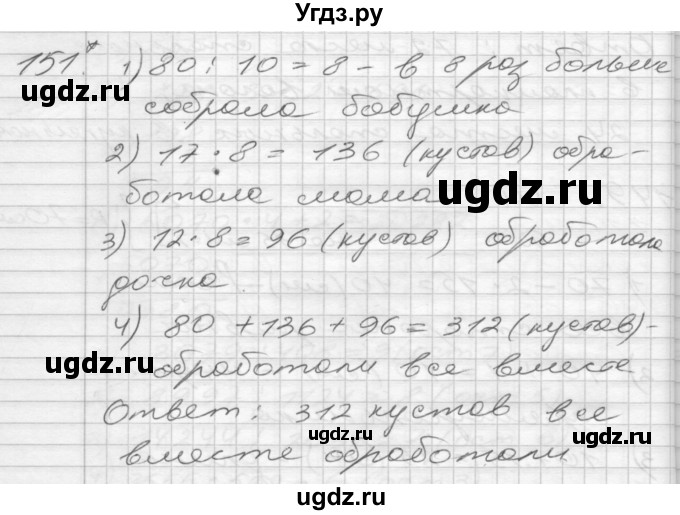 Угдз.ру
151. 1) 80 : 10 = 8 - в 8 раз больше
собрала бабушка
2) 17 · 8 = 136 (кустов) обра-
ugdz.ru
ботала мама
ugdz.ru
3) 12 · 8 = 96 (кустов) обработала
дочка
4) 80 + 136 + 96 = 312 (кустов) -
ugdz.ru
ugdz.ru
обработали все вместе
Ответ: 312 кустов все
ugdz.ru
ugdz.ru
вместе обработали
ugdz.ru
ugdz.ru